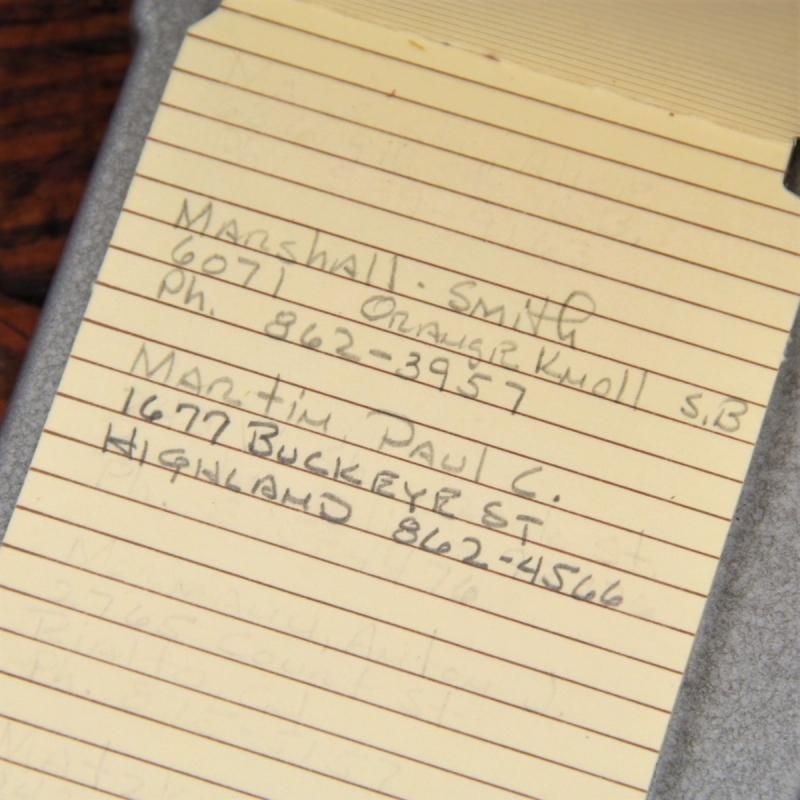 Marshall. Smith
6071 Orange Knoll S.B
Ph. 862-3957
Martin, Paul C.
1677 BUCKEYE ST
HIGHLAND 862-4566